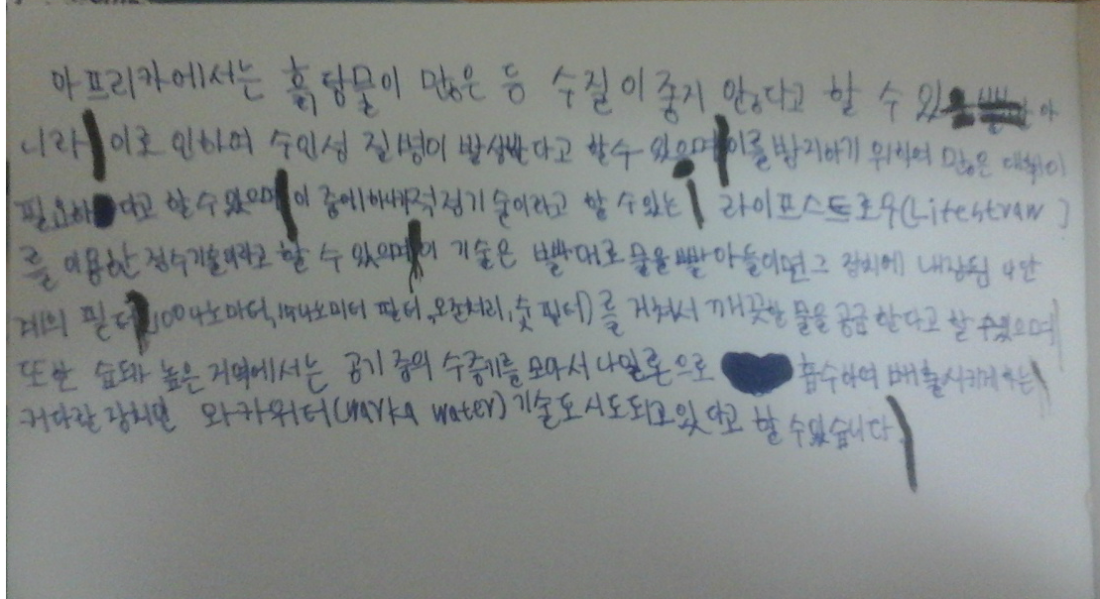 아프리카에서는 흙탕물이 많은 등 수질이 좋지 않다고 할 수 있 아
니라 이로 인하여 수인성 질병이 발생한다고 할수 있으며 이를 방지하기 위하여 많은 대책이
필요하다고 할수있으며 이 중에 하나가 적정기술이라고 할 수 있는 라이프스트로우(Lifestraw)
를 이용한 정수기술이라고 할 수 있으며 이 기술은 빨대로 물을 빨아들이면 그 장치에 내장된 4단
계의 필터 100나노마터, 15나노미터 필터, 오존처리, 숯 필터)를 거쳐서 깨끗한 물을 공급한다고 할 수있으며
또한 습도가 높은 지역에서는 공기 중의 수증기를 모아서 나일론으로 흡수하여 배출시키게 하는
커다란 장치인 와카워터(warka water) 기술도 시도되고 있다고 할 수있습니다